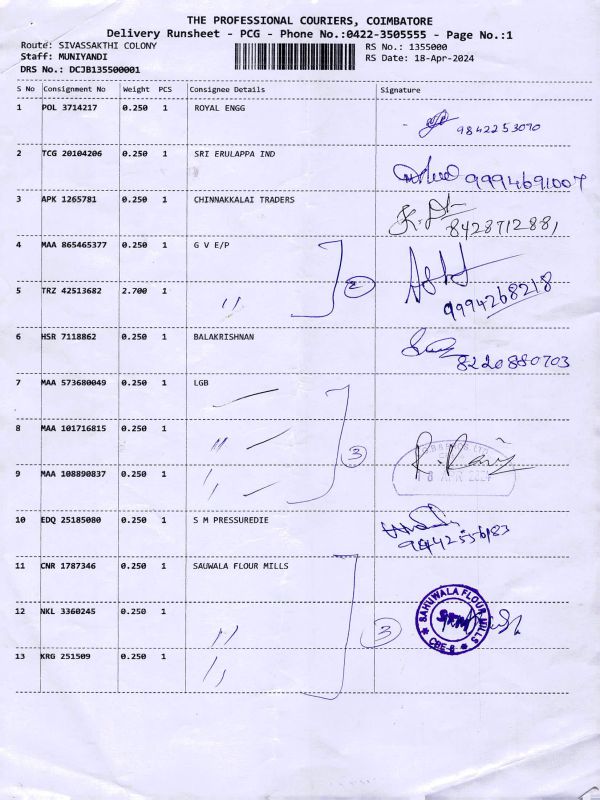 THE PROFESSIONAL COURIERS, COIMBATORE
Delivery Runsheet - PCG - Phone No.:0422-3505555 - Page No.:1
Route: SIVASSAKTHI COLONY RS No.: 1355000
Staff: MUNIYANDI RS Date: 18-Apr-2024
DRS No.: DCJB135500001
S No Consignment No Weight PCS Consignee Details Signature
1 POL 3714217 0.250 1 ROYAL ENGG
9842253070
2 TCG 20104206 0.250 1 SRI ERULAPPA IND
9994691007
3 APK 1265781 0.250 1 CHINNAKKALAI TRADERS
8428712881
4 MAA 865465377 0.250 1 G V E/P
5 TRZ 42513682 2.700 1 " 2
9994268218
6 HSR 7118862 0.250 1 BALAKRISHNAN
8220880703
7 MAA 573680049 0.250 1 LGB
8 MAA 101716815 0.250 1 " 3 R. Ravi
9 MAA 108890837 0.250 1 "
10 EDQ 25185080 0.250 1 S M PRESSUREDIE
11 CNR 1787346 0.250 1 SAUWALA FLOUR MILLS
12 NKL 3360245 0.250 1 " 3 SAHUWALA FLOUR MILLS CBE-8
13 KRG 251509 0.250 1 "